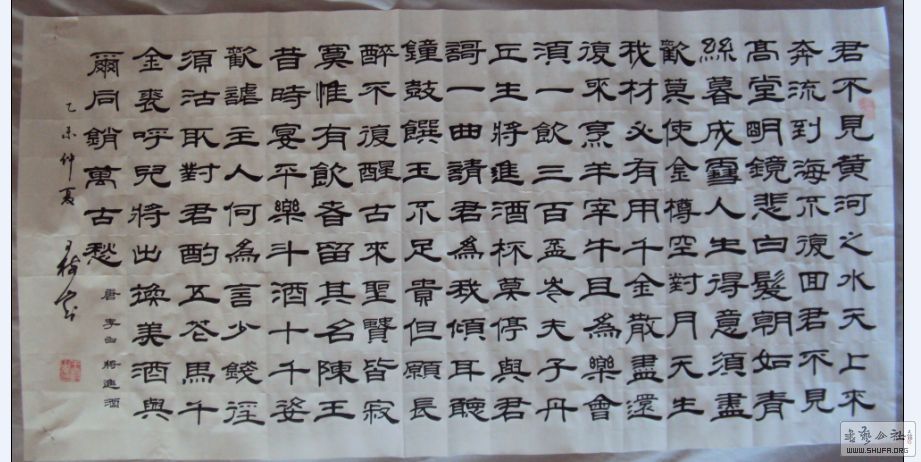 君不見黃河之水天上來
奔流到海不復回君不見
高堂明鏡悲白髮朝如青
絲暮成雪人生得意須盡
歡莫使金樽空對月天生
我材必有用千金散盡還
復來烹羊宰牛且為樂會
須一飲三百盃岑夫子丹
丘生將進酒杯莫停與君
謌一曲請君為我傾耳聽
鐘鼓饌玉不足貴但願長
醉不復醒古來聖賢皆寂
寞惟有飲者留其名陳王
昔時宴平樂斗酒十千恣
歡謔主人何為言少錢徑
須沽取對君酌五花馬千
金裘呼兒將出換美酒與
爾同銷萬古愁
唐 李白 將進酒
乙未仲夏
書藝公社
WWW.SHUFA.ORG